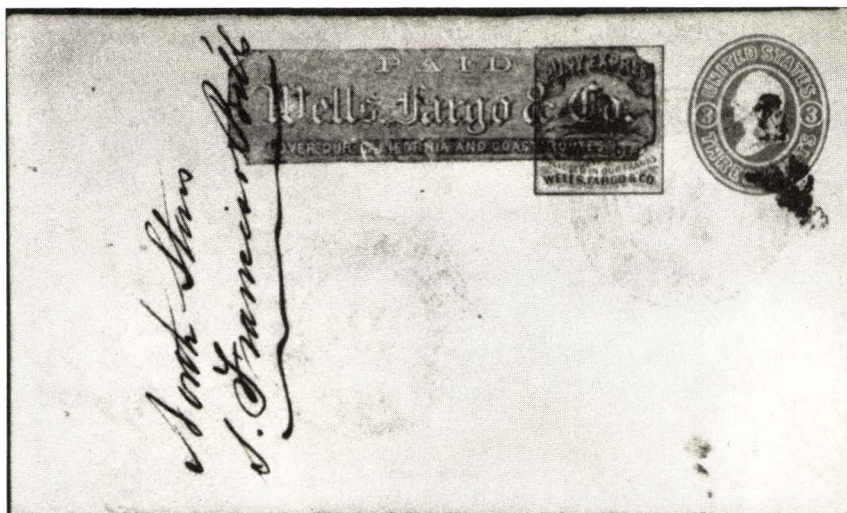 PAID
Wells, Fargo & Co.
OVER OUR CALIFORNIA AND COAST ROUTES
PONY EXPRESS
IN OUR FRANKS
WELLS, FARGO & CO.
UNITED STATES
3 3
THREE CENTS
North Star
S. Francisco